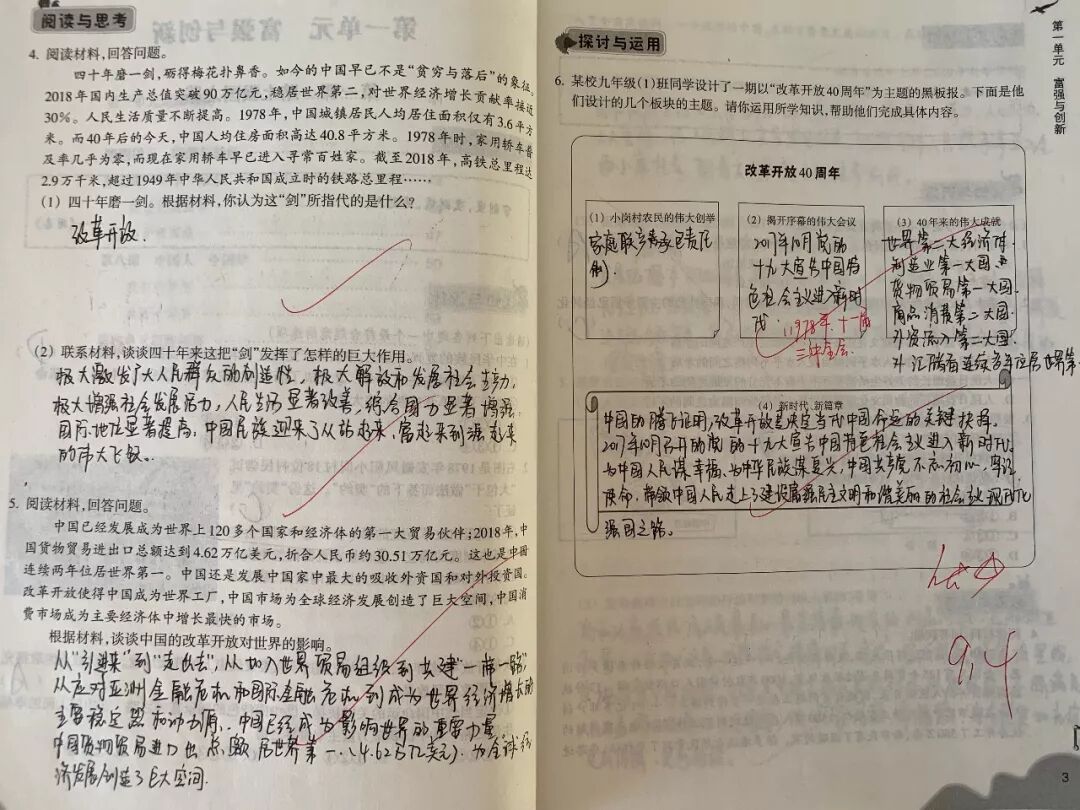 阅读与思考
4. 阅读材料,回答问题。
四十年磨一剑,砺得梅花扑鼻香。如今的中国早已不是“贫穷与落后”的象征。
2018年国内生产总值突破90万亿元,稳居世界第二,对世界经济增长贡献率接近
30%。人民生活质量不断提高。1978年,中国城镇居民人均居住面积仅有3.6平方
米。而40年后的今天,中国人均住房面积高达40.8平方米。1978年时,家用轿车普
及率几乎为零,而现在家用轿车早已进入寻常百姓家。截至2018年,高铁总里程达
2.9万千米,超过1949年中华人民共和国成立时的铁路总里程……
(1) 四十年磨一剑。根据材料,你认为这“剑”所指代的是什么?
改革开放.
(2) 联系材料,谈谈四十年来这把“剑”发挥了怎样的巨大作用。
极大激发广大人民群众的创造性,极大解放和发展社会生产力,
极大增强社会发展活力,人民生活显著改善,综合国力显著增强,
国际地位显著提高,中国民族迎来了从站起来、富起来到强起来
的伟大飞跃。
5. 阅读材料,回答问题。
中国已经发展成为世界上120多个国家和经济体的第一大贸易伙伴;2018年,中
国货物贸易进出口总额达到4.62万亿美元,折合人民币约30.51万亿元。这也是中国
连续两年位居世界第一。中国还是发展中国家中最大的吸收外资国和对外投资国。
改革开放使得中国成为世界工厂,中国市场为全球经济发展创造了巨大空间,中国消
费市场成为主要经济体中增长最快的市场。
根据材料,谈谈中国的改革开放对世界的影响。
从“引进来”到“走出去”,从加入世界贸易组织到共建“一带一路”
从应对亚洲金融危机和国际金融危机到成为世界经济增长的
主要稳定器和动力源,中国已经成为影响世界的重要力量
中国货物贸易进口出总额居世界第一.(4.62万亿美元).为全球经
济发展创造了巨大空间.
探讨与运用
6. 某校九年级(1)班同学设计了一期以“改革开放40周年”为主题的黑板报。下面是他
们设计的几个板块的主题。请你运用所学知识,帮助他们完成具体内容。
改革开放40周年
(1) 小岗村农民的伟大创举
家庭联产承包责任
制.
(2) 揭开序幕的伟大会议
2017年10月党的
十九大宣告中国特
色社会主义进入新时
代.
1978年.十一届
三中全会.
(3) 40年来的伟大成就
世界第二大经济体.
制造业第一大国.
货物贸易第一大国.
商品消费第二大国.
外资流入第二大国
外汇储备连续多年位居世界第一
(4) 新时代 新篇章
中国的腾飞证明,改革开放是决定当代中国命运的关键抉择.
2017年10月召开的党的十九大宣告中国特色社会主义进入新时代.
为中国人民谋幸福、为中华民族谋复兴,中国共产党不忘初心,牢记
使命,带领中国人民走上了建设富强民主文明和谐美丽的社会主义现代化
强国之路。
9.4
第一单元 富强与创新
3